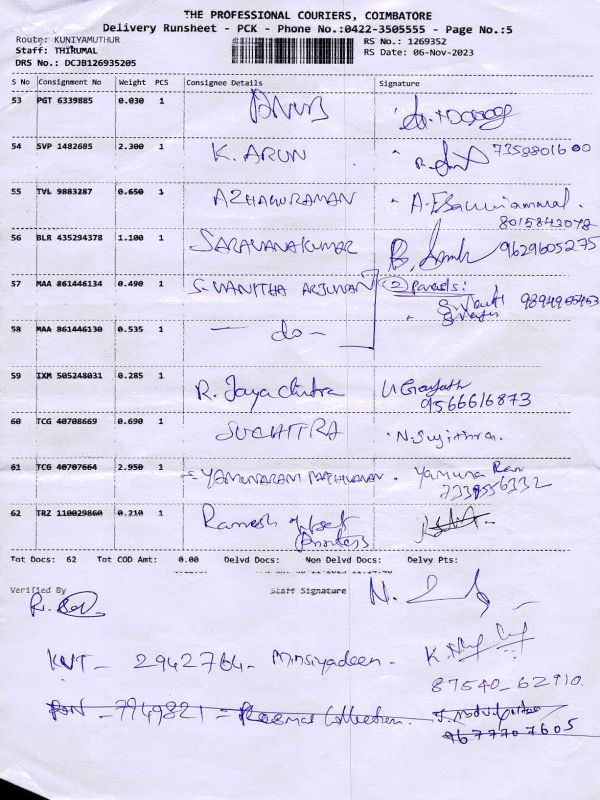 THE PROFESSIONAL COURIERS, COIMBATORE
Delivery Runsheet - PCK - Phone No.:0422-3505555 - Page No.:5
Route: KUNIYAMUTHUR
RS No.: 1269352
Staff: THIRUMAL
RS Date: 06-Nov-2023
DRS No.: DCJB126935205
S No Consignment No Weight PCS Consignee Details Signature
53 PGT 6339885 0.030 1
54 SVP 1482685 2.300 1 K. ARUN 7358801600
55 TVL 9883287 0.650 1 AZHAGURAMAN
8015843072
56 BLR 435294378 1.100 1 SARAVANAKUMAR 9629605275
57 MAA 861446134 0.490 1 S. VANITHA ARJUNAN (2) parcels:
58 MAA 861446130 0.535 1 — do —
59 IXM 505248031 0.285 1 R. Jayachitra
9566616873
60 TCG 40708669 0.690 1 SUCHITRA N. Sujithra.
61 TCG 40707664 2.950 1 Yamuna Rani
7338556332
62 TRZ 110029860 0.210 1 Ramesh offset
Printers
Tot Docs: 62 Tot COD Amt: 0.00 Delvd Docs: Non Delvd Docs: Delvy Pts:
Verified By Staff Signature
2942764 -
87540-62910
7949821
9677707605